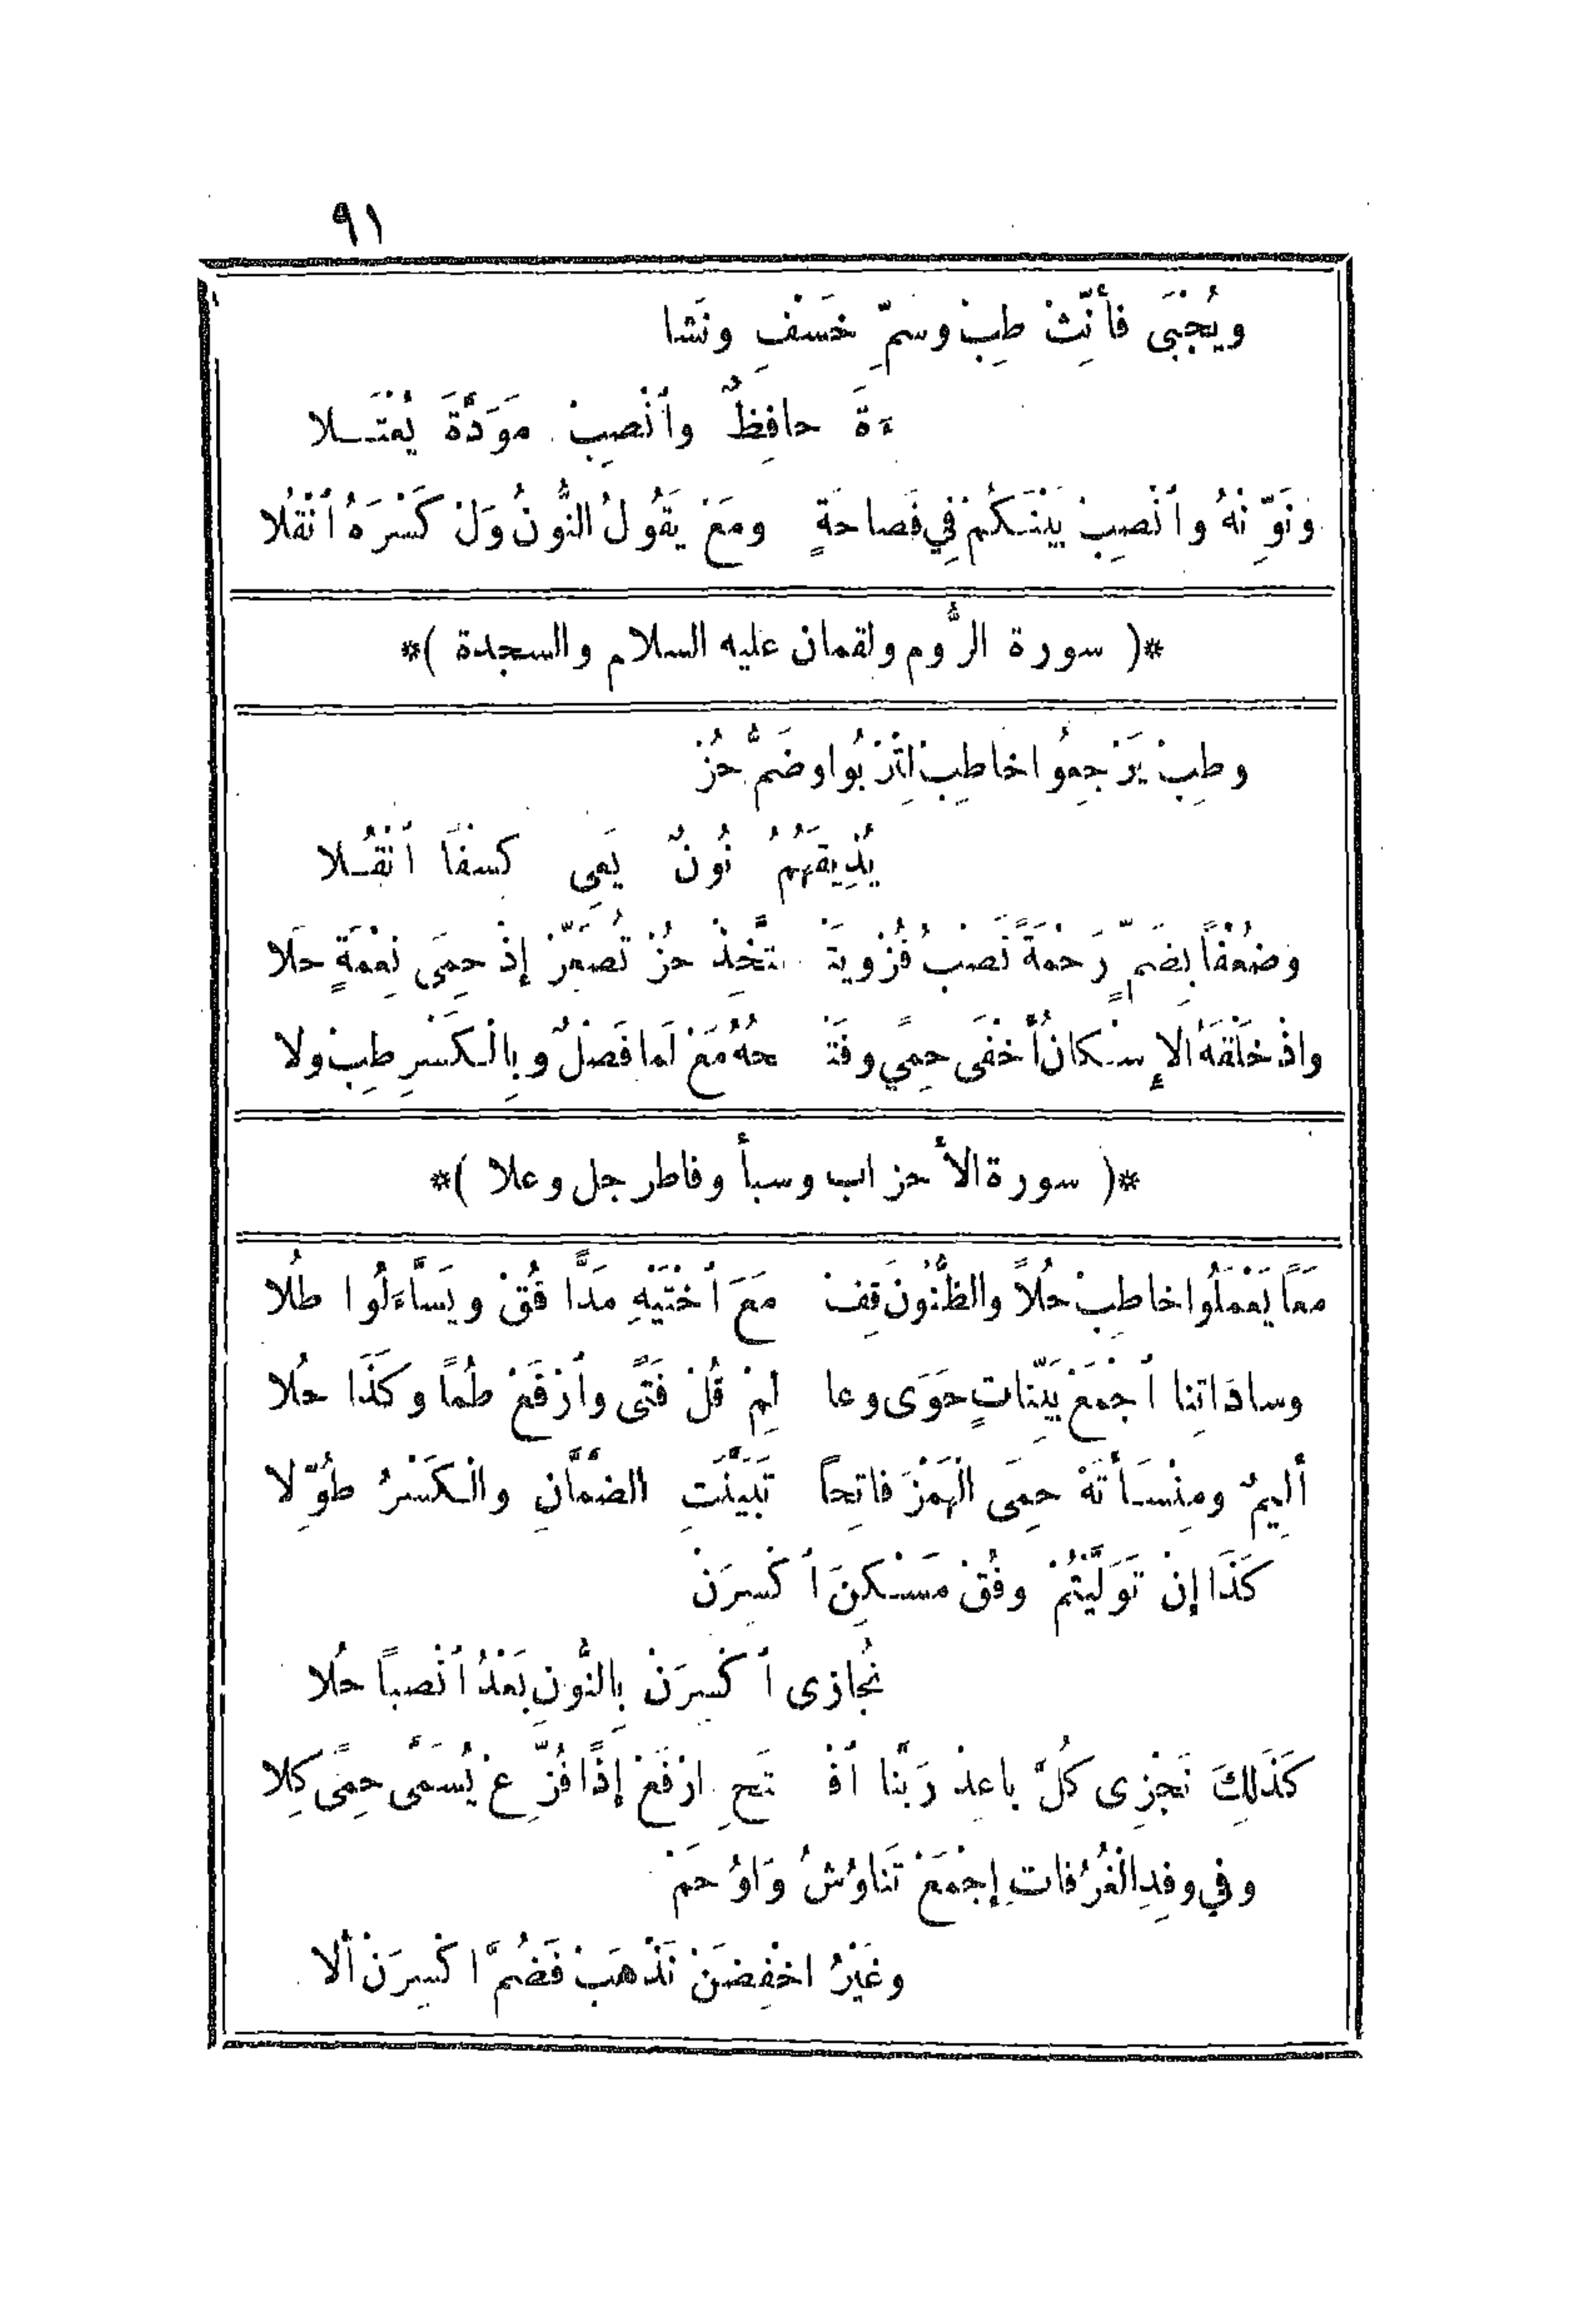 ٩١
ويُجْبَى فأَنِّثْ طِبْ وسَمِّ خَسَفِ ونَشا
ءَةَ حافِظٌ وأنْصِبْ مَوَدَّةَ يُعْتَـلا
وَنَوِّنْهُ وأنْصِبْ بَيْنَـكُمْ فِي فَصاحَةٍ ومَعْ يَقُولُ النُّونُ وَلْ كَسْرَهُ أنْقُلا
*( سورة الرُّوم ولقمان عليه السلام والسجدة )*
وطِبْ يَرْجِعُوا خاطِبْ لِتُرْبُوا وضَمَّ حُزْ
يُذِيقَهُمُ نُونٌ يَعِي كسفًا أنْقُـلا
وضُعْفًا بِضَمٍّ رَحْمَةً نَصْبُ فُزْ ويَتْ يَتَّخِذْ حُزْ تُصَعِّرْ إذْ حِمَى نِعْمَةٍ حَلا
واذْ خَلْقَهُ الإسْـكانُ أُخْفَى حِمًي وفَتْ حُهُ مَعْ لَما فَصْلٌ وبِالْـكَسْرِ طِبْ ولا
*( سورة الأحزاب وسبأ وفاطر جل وعلا )*
مَعاً يَعْمَلُوا خاطِبْ حُلاً والظُّنُونَ قِفْ مَعَ أخْتَيْهِ مَدًّا فُقْ ويَسَّاءَلُوا طُلا
وساداتِنا أجْمَعْ بَيِّناتٍ حَوَى وعا لِمْ قُلْ فَتًى وأرْفَعْ طُماً وكَذَا حُلا
أَلِيمٌ ومِنْسَأَتَهْ حِمَى الْهَمْزَ فاتِحاً تَبَيَّنَتِ الضَّمَّانِ والْـكَسْرُ طُوِّلا
كَذَا إِنْ تَوَلَّيْتُمْ وفُقْ مَسْـكِنَ أكْسِرَنْ
نُجازِى أكْسِرَنْ بِالنُّونِ بَعْدُ أنْصِباً حُلا
كَذَلِكَ نَجْزِى كُلَّ باعِدْ رَبُّنا أفْ تَحِ ارْفَعْ إِذًا فُزِّعْ يُسَمَّى حِمًى كِلا
وفي وفِدِ الْغُرُفاتِ إجْمَعْ تَناوُشُ وَاوُ حَمْ
وغَيْرُ اخْفِضَنْ تَذْهَبْ فَضُمَّ اكْسِرَنْ ألا